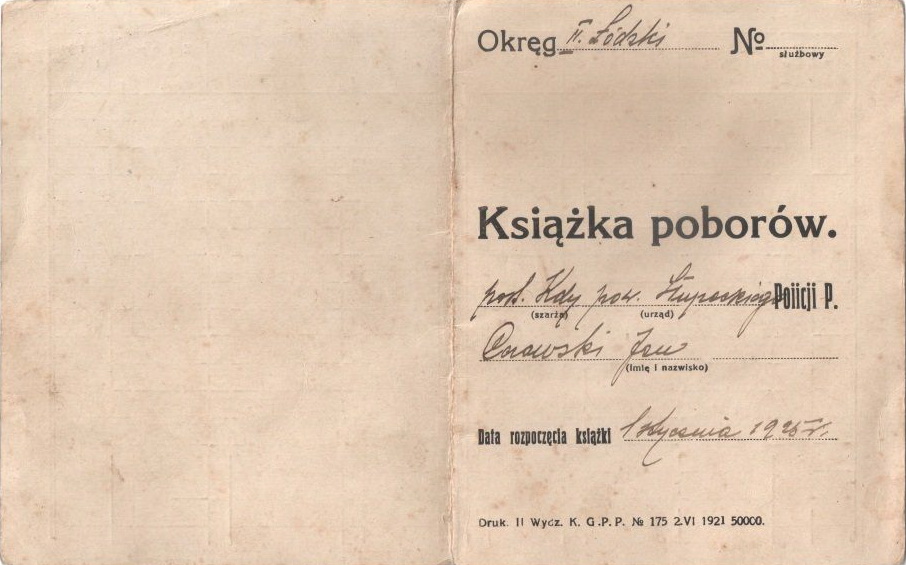 Okręg II. Łódzki No
służbowy
Książka poborów.
post. Kdy pow. Słupeckiego Policji P.
(szarża) (urząd)
Jan
(imię i nazwisko)
Data rozpoczęcia książki 1 stycznia 1925 r.
Druk. II Wycz. K. G.P.P. № 175 2.VI 1921 50000.